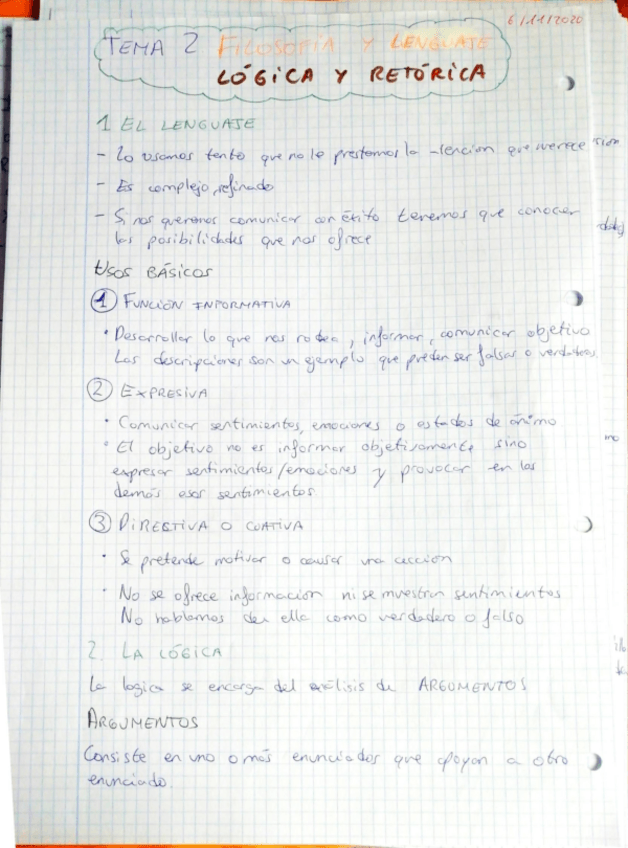 6/11/2020
TEMA 2 FILOSOFÍA Y LENGUAJE
LÓGICA Y RETÓRICA
1 EL LENGUAJE
- Lo usamos tanto que no le prestamos la atención que merece
- Es complejo, refinado
- Si nos queremos comunicar con éxito tenemos que conocer
las posibilidades que nos ofrece
USOS BÁSICOS
1 FUNCIÓN INFORMATIVA
• Desarrollar lo que nos rodea, informar, comunicar objetivo
Las descripciones son un ejemplo que pueden ser falsas o verdaderas.
2 EXPRESIVA
• Comunicar sentimientos, emociones o estados de ánimo
• El objetivo no es informar objetivamente sino
expresar sentimientos/emociones y provocar en los
demás esos sentimientos
3 DIRECTIVA O COATIVA
• Se pretende motivar o causar una acción
• No se ofrece información ni se muestran sentimientos
No hablamos de ella como verdadero o falso
2. LA LÓGICA
La logica se encarga del análisis de ARGUMENTOS
ARGUMENTOS
Consiste en uno o más enunciados que apoyan a otro
enunciado.